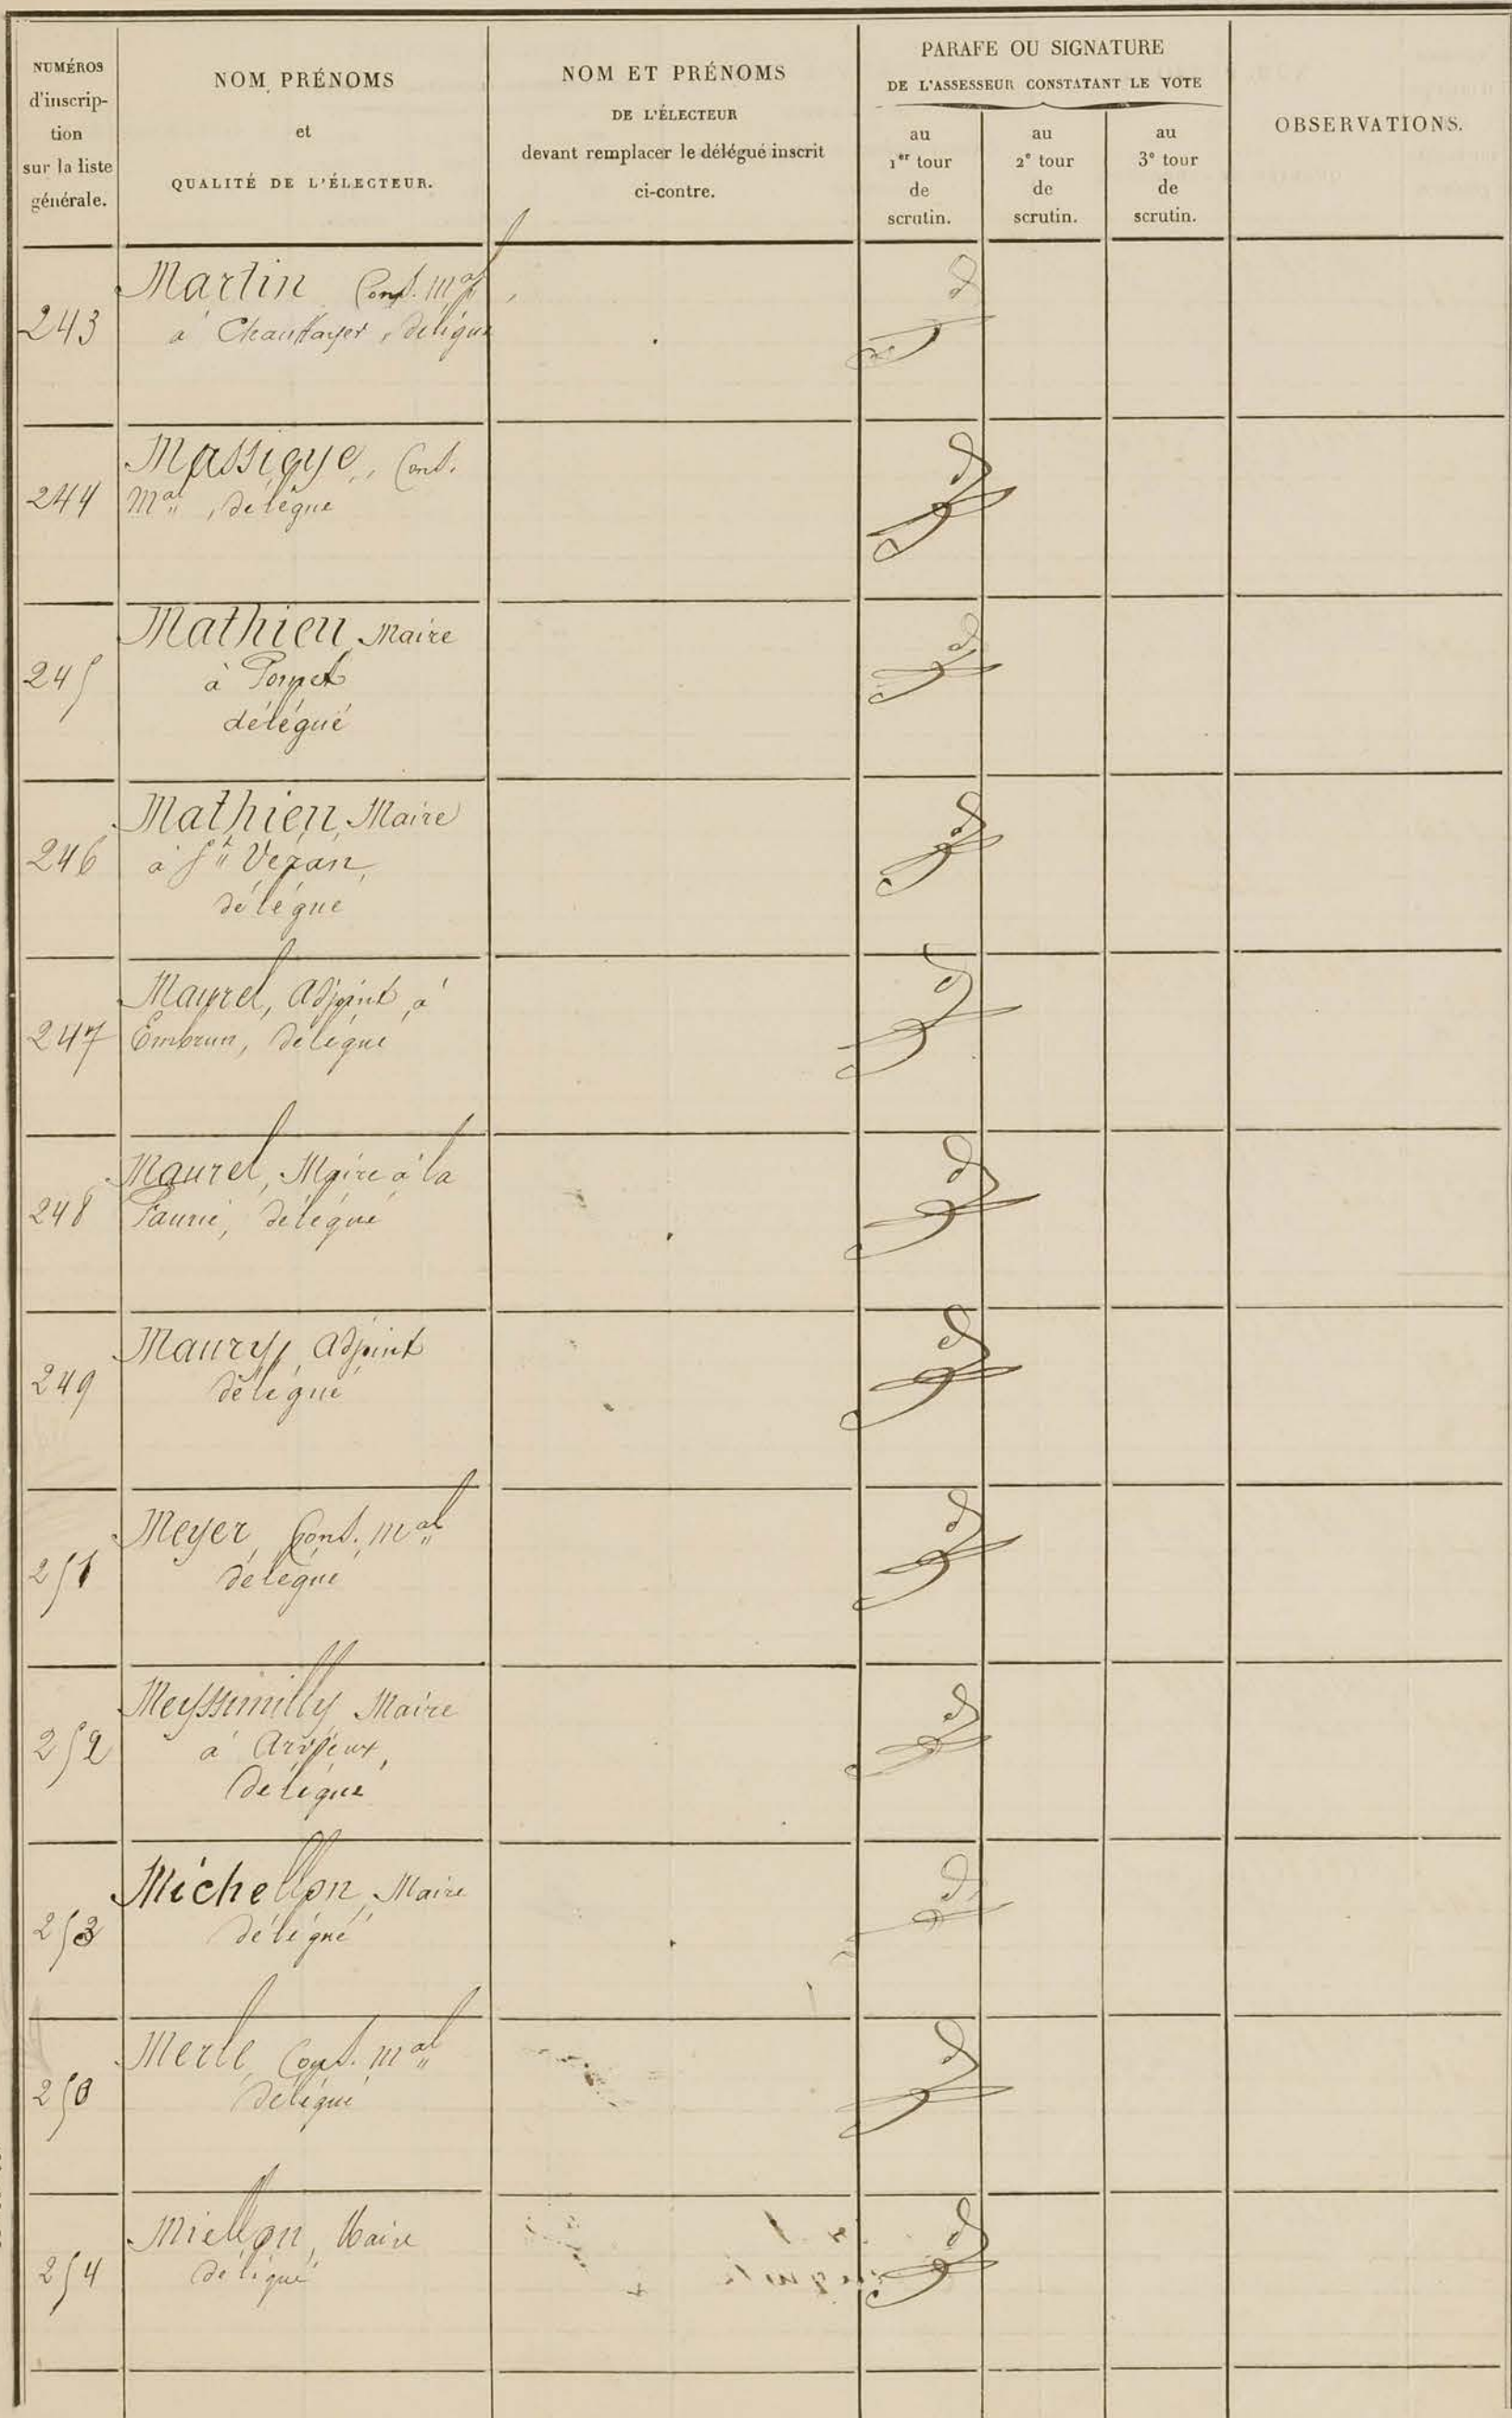 NUMÉROS
d'inscrip-
tion
sur la liste
générale.
NOM, PRÉNOMS
et
QUALITÉ DE L'ÉLECTEUR.
NOM ET PRÉNOMS
DE L'ÉLECTEUR
devant remplacer le délégué inscrit
ci-contre.
PARAFE OU SIGNATURE
DE L'ASSESSEUR CONSTATANT LE VOTE
au
1er tour
de
scrutin.
au
2e tour
de
scrutin.
au
3e tour
de
scrutin.
OBSERVATIONS.
243
Martin Cons. mal
à Chauffayer, délégué
244
Massieye, Cons.
mal, délégué
245
Mathieu, Maire
à
délégué
246
Mathieu, Maire
à St Veran,
délégué
247
Maurel, adjoint à
Embrun, délégué
248
Maurel, Maire à la
Faurie, délégué
249
Maury, adjoint
délégué
251
Meyer, Cons. mal
délégué
252
Meyssimilly Maire
à Arvieux,
délégué
253
Michellon, Maire
délégué
250
Merle, Cons. mal
délégué
254
Miellon, Maire
délégué